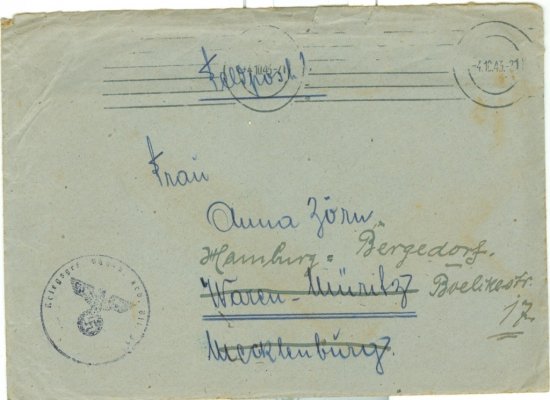 -4.10.43.-21
Feldpost!
Frau
Anna Zörn
Hamburg = Bergedorf.
Waren-Müritz Boelkestr.
17
Mecklenburg.